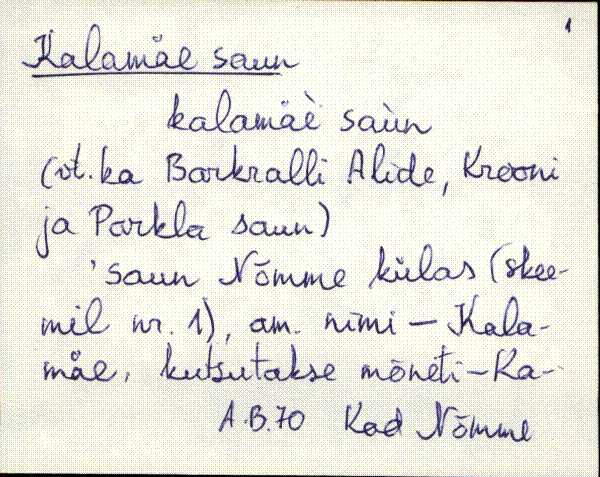 1
Kalamäe saun
kalamäè saùn
(vt. ka Barkralli Alide, Krooni
ja Parkla saun)
'saun Nõmme külas (skee-
mil nr. 1), am. nimi – Kala-
mäe, kutsutakse mõneti – Ka-
A.B.70 Kad Nõmme